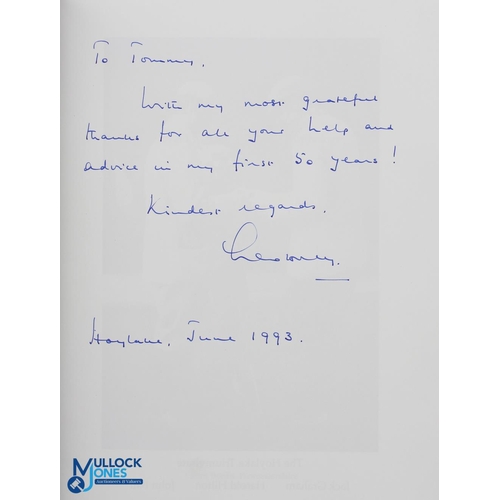 To Tommy.
With my most grateful
thanks for all your help and
advice in my first 50 years!
Kindest regards.
Hoylake, June 1993.
MULLOCK
JONES
Auctioneers & Valuers